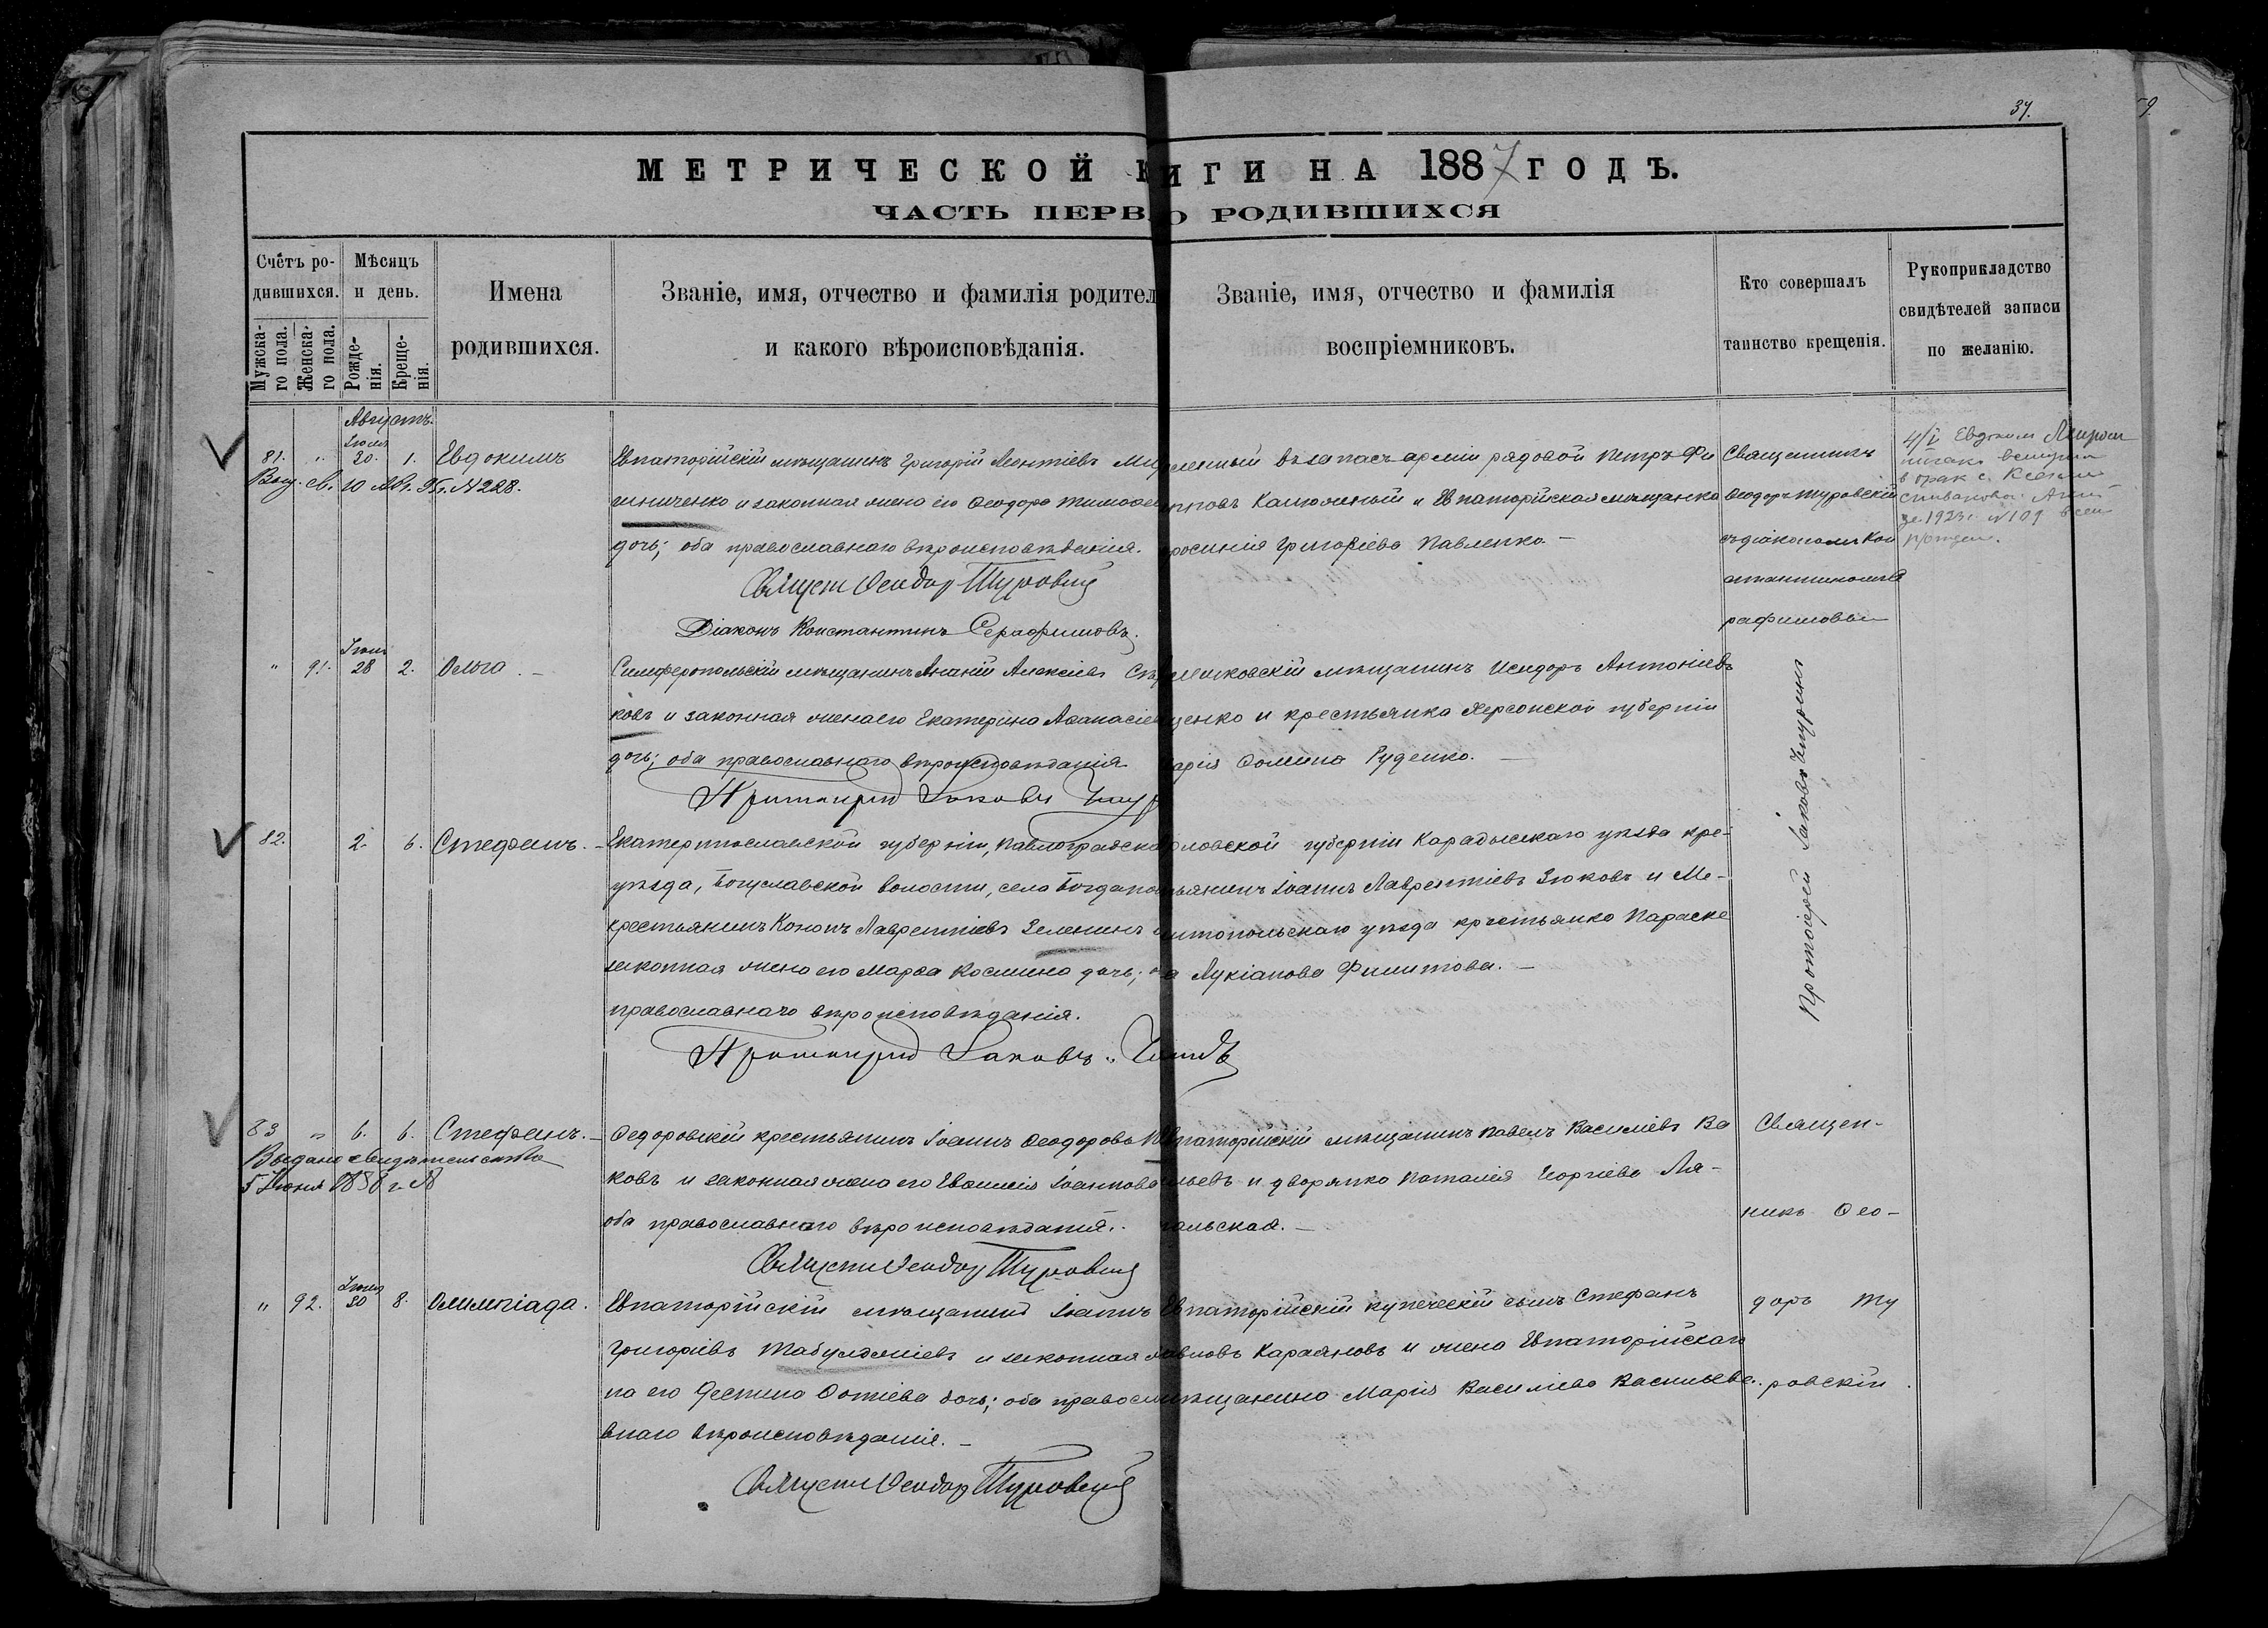 37.
МЕТРИЧЕСКОЙ К ИГИ НА 1887 ГОДЪ.
ЧАСТЬ ПЕРВ О РОДИВШИХСЯ
Счётъ родившихся.
Мужскаго пола.
Женскаго пола.
Мѣсяцъ и день.
Рожденія.
Крещенія.
Имена родившихся.
Званіе, имя, отчество и фамилія родител
и какого вѣроисповѣданія.
Званіе, имя, отчество и фамилія
воспріемниковъ.
Кто совершалъ
таинство крещенія.
Рукоприкладство
свидѣтелей записи
по желанію.
Августъ.
81. " Іюля 30. 1. Евдокимъ
Выд. св. 10 Авг. 95 г. № 228.
Евпаторійскій мѣщанинъ Григорій Леонтіевъ Ми
шниченко и законная жена его Феодора Тимофе
дочь; оба православнаго вѣроисповѣданія.
Свящ Феодор Туровскій
Діаконъ Константинъ Серафимовъ.
въ запасъ арміи рядовой Петръ Фи
пповъ Калюжный и Евпаторійская мѣщанка
росинія Григоріева Павленко. —
Священникъ
Феодоръ Туровскій
съ діакономъ Кон
стантиномъ Се
рафимовы
4/I Евдоким Мирош
вступил
в брак с
1923 г. № 109
" 91. Іюля 28 2. Ольга. —
Симферопольскій мѣщанинъ Ананій Алексіевъ Ст
ковъ и законная жена его Екатерина Афанасіе
дочь; оба православнаго вѣроисповѣданія
Протоіерей Іаковъ Чепур
ковскій мѣщанинъ Исидоръ Антоніевъ
ценко и крестьянка Херсонской губерніи
арія Фомина Руденко. —
Протоіерей Іаковъ Чепуринъ
82. 2. 6. Стефанъ. —
Екатеринославской губерніи, Павлоградска
уѣзда, Богуславской волости, села Богдано
крестьянинъ Кононъ Лаврентіевъ Зеленинъ и
законная жена его Марфа Космина дочь; о
православнаго вѣроисповѣданія.
Протоіерей Іаковъ Чепу
рловской губерніи Карачевскаго уѣзда кре-
ьянинъ Іоаннъ Лаврентіевъ Зюковъ и Ме-
итопольскаго уѣзда крестьянка Параске
а Лукіанова Филитова. —
83 " 6. 6. Стефанъ. —
Выдано свидѣтельство
5 Іюня
Федоровскій крестьянинъ Іоаннъ Феодоровъ
ковъ и законная жена его Евфимія Іоаннова
оба православнаго вѣроисповѣданія.
Свящ Феодор Туровскій
Евпаторійскій мѣщанинъ Павелъ Василіевъ Ва
ильевъ и дворянка Наталія Георгіева Ля-
альская. —
Священ-
никъ Фео-
доръ Ту
ровскій.
" 92. Іюля 30 8. Олимпіада.
Евпаторійскій мѣщанинъ Іоаннъ
Григоріевъ Табулджіевъ и законная же
на его Фестина Фотіева дочь; оба правосла
внаго вѣроисповѣданія. —
Свящ Феодор Туровскій
Евпаторійскій купеческій сынъ Стефанъ
авловъ Караяновъ и жена Евпаторійскаго
мѣщанина Марія Василіева Васильева.